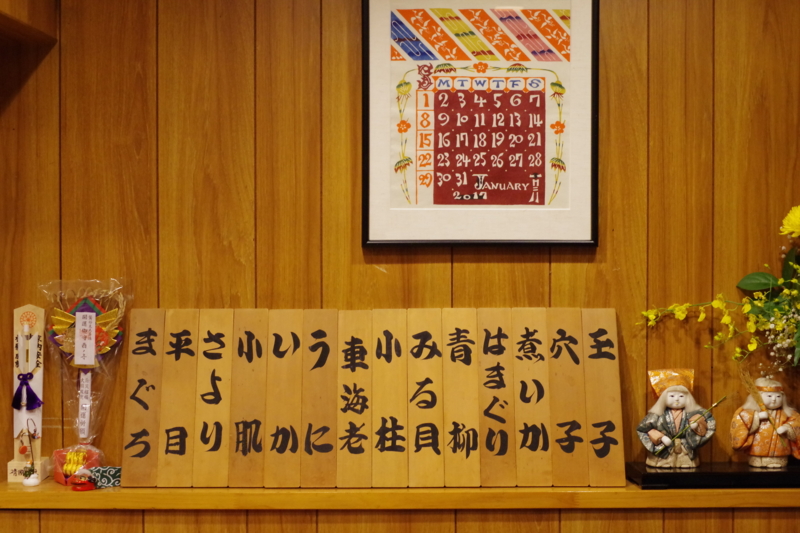 M T W T F S
1 2 3 4 5 6 7
8 9 10 11 12 13 14
15 16 17 18 19 20 21
22 23 24 25 26 27 28
29 30 31 JANUARY
2017
玉子
穴子
煮いか
はまぐり
青柳
みる貝
小柱
車海老
うに
いか
小肌
さより
平目
まぐろ
家内安全